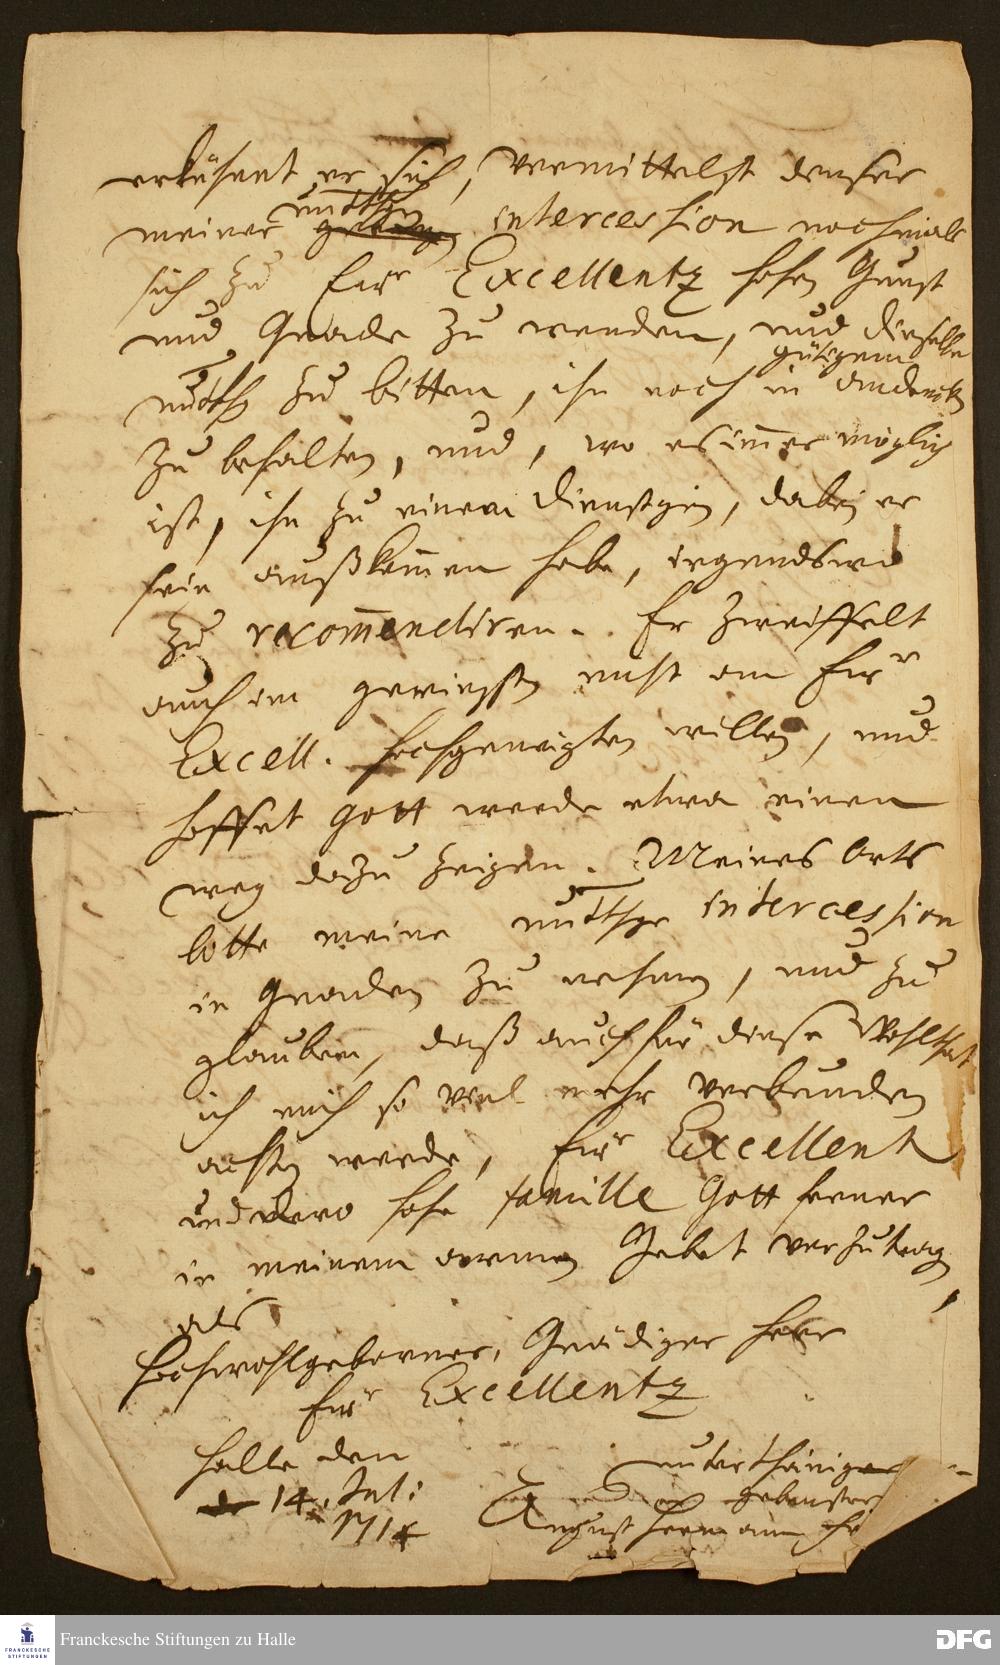 erkühnet er sich, vermittelst dieser
unterth.
meiner intercession nochmals
sich zu Ewr Excellentz hohen Gunst
und Gnade zu wenden, und dieselbe
unterth. zu bitten, ihn noch in gütigem andencken
zu behalten, und, wo es im̄er möglich
ist, ihn zu einem Dienstgen, dabey er
sein außkom̄en habe, irgendswo
zu recom̄endiren. Er zweiffelt
auch im geringsten nicht an Ewr
Excell. hochgeneigten willen, und
hoffet Gott werde etwa einen
weg dazu zeigen. Meines Orts
bitte meine unterthge intercession
in Gnaden zu nehmen, und zu
glauben, daß auch für diese Wohlthat
ich mich so viel mehr verbunden
achten werde, Ewr Excellent
und dero hohe famille Gott ferner
in meinem armen Gebet vorzutragen,
als
Hochwohlgeborner, Gnädiger Herr
Ewr Excellentz
Halle den
14. Jul:
unterthäniger
August Hermann
Franckesche Stiftungen zu Halle
FRANCKESCHE
STIFTUNGEN
DFG